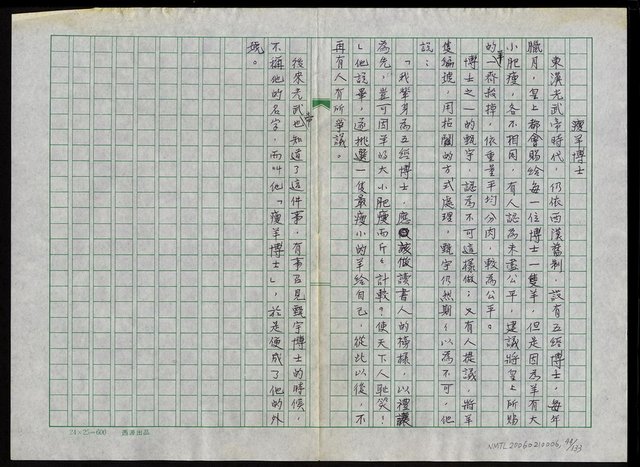 瘦羊博士
東漢光武帝時代,仍依西漢舊制,設有五經博士,每年
臘月,皇上都會賜給每一位博士一隻羊,但是因為羊有大
小肥瘦,各不相同,有人認為未盡公平,建議將皇上所賜
的羊一齊殺掉,依重量平均分肉,較為公平。
博士之一的甄宇,認為不可這樣做;又有人提議,將羊
隻編號,用拈鬮的方式處理,甄宇仍然期期以為不可,他
說:
「我輩身為五經博士,應該做讀書人的榜樣,以禮讓
為先,豈可因羊的大小肥瘦而斤斤計較?使天下人恥笑!
」他說畢,遂挑選一隻最瘦小的羊給自己,從此以後,不
再有人有所爭議。
後來光武帝也知道了這件事,有事召見甄宇博士的時候,
不稱他的名字,而叫他「瘦羊博士」,於是便成了他的外
號。
24×25=600
NMTL20060210006, 44/133